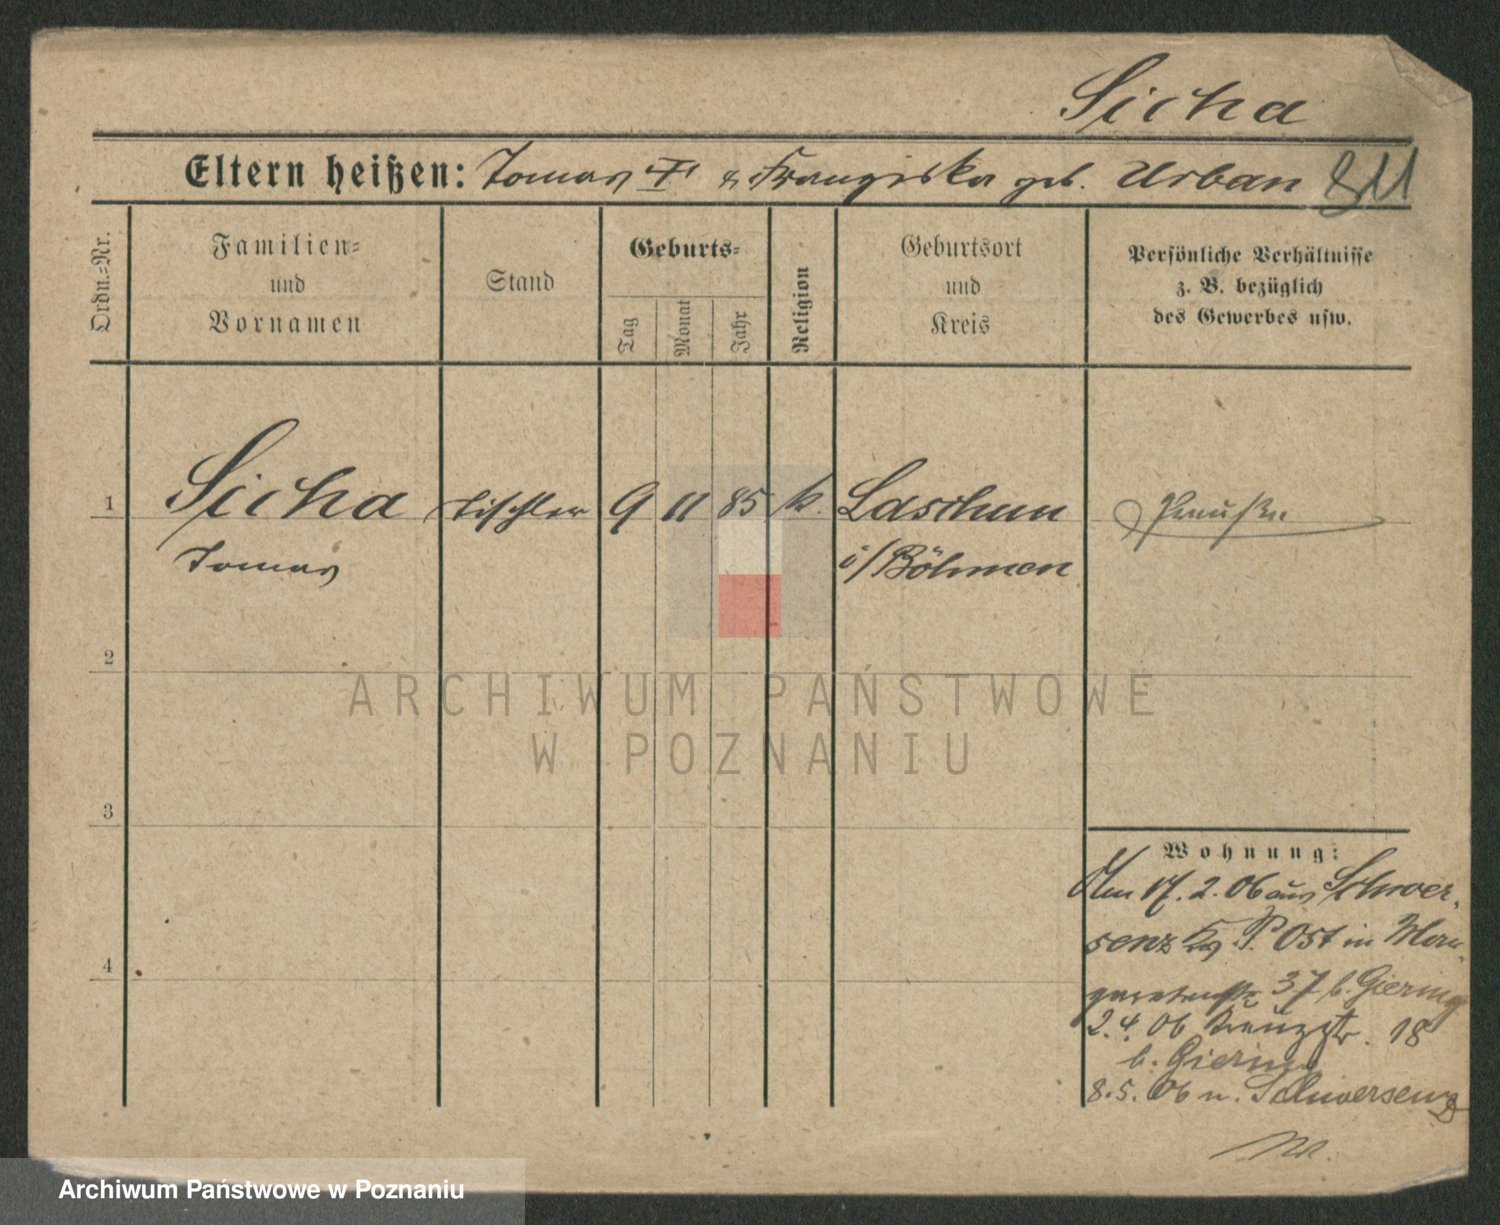 Sicha
Eltern heißen: Tomas & Franziska geb. Urban 811
Ordn.=Nr.
Familien=
und
Vornamen
Stand
Geburts=
Tag
Monat
Jahr
Religion
Geburtsort
und
Kreis
Persönliche Verhältnisse
z. B. bezüglich
des Gewerbes usw.
1 Sicha Tischler 9 11 85 k. Laschun Preuße
Tomas i/Böhmen
2
3
4
Wohnung:
Am 17.2.06 aus Schwer-
senz P. Ost in Mar-
37 b. Giering
2.4.06 Kreuzstr. 18
b. Giering
8.5.06 n. Schwersenz
ARCHIWUM PAŃSTWOWE
W POZNANIU
Archiwum Państwowe w Poznaniu